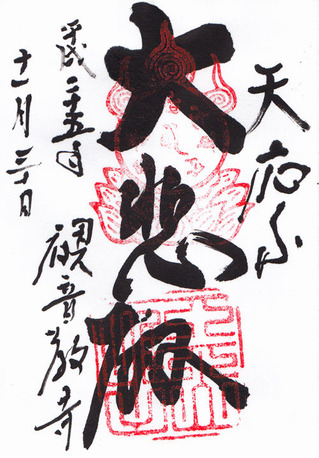 天応山
大悲殿
平成二十五年
十一月三十日
観音教寺